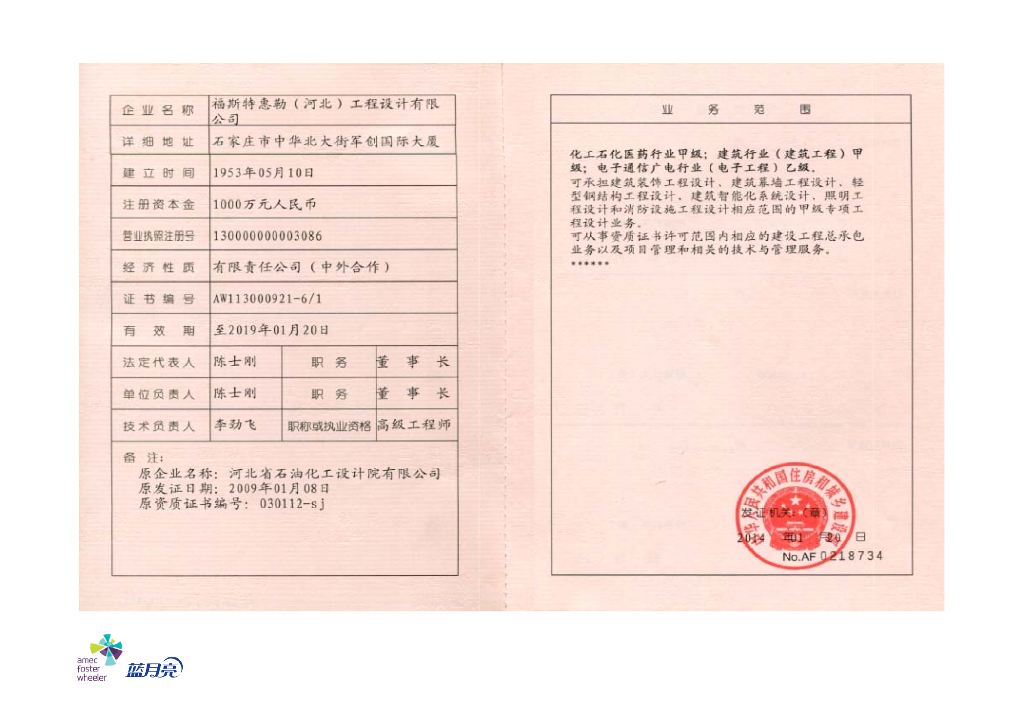 企业名称 福斯特惠勒（河北）工程设计有限
公司
详细地址 石家庄市中华北大街军创国际大厦
建立时间 1953年05月10日
注册资本金 1000万元人民币
营业执照注册号 130000000003086
经济性质 有限责任公司（中外合作）
证书编号 AW113000921-6/1
有效期 至2019年01月20日
法定代表人 陈士刚 职务 董事长
单位负责人 陈士刚 职务 董事长
技术负责人 李劲飞 职称或执业资格 高级工程师
备注：
原企业名称：河北省石油化工设计院有限公司
原发证日期：2009年01月08日
原资质证书编号：030112-sj
业务范围
化工石化医药行业甲级；建筑行业（建筑工程）甲
级；电子通信广电行业（电子工程）乙级。
可承担建筑装饰工程设计、建筑幕墙工程设计、轻
型钢结构工程设计、建筑智能化系统设计、照明工
程设计和消防设施工程设计相应范围的甲级专项工
程设计业务。
可从事资质证书许可范围内相应的建设工程总承包
业务以及项目管理和相关的技术与管理服务。
******
中华人民共和国住房和城乡建设部
发证机关：（章）
2014年01月20日
No.AF 0218734
amec
foster
wheeler
蓝月亮